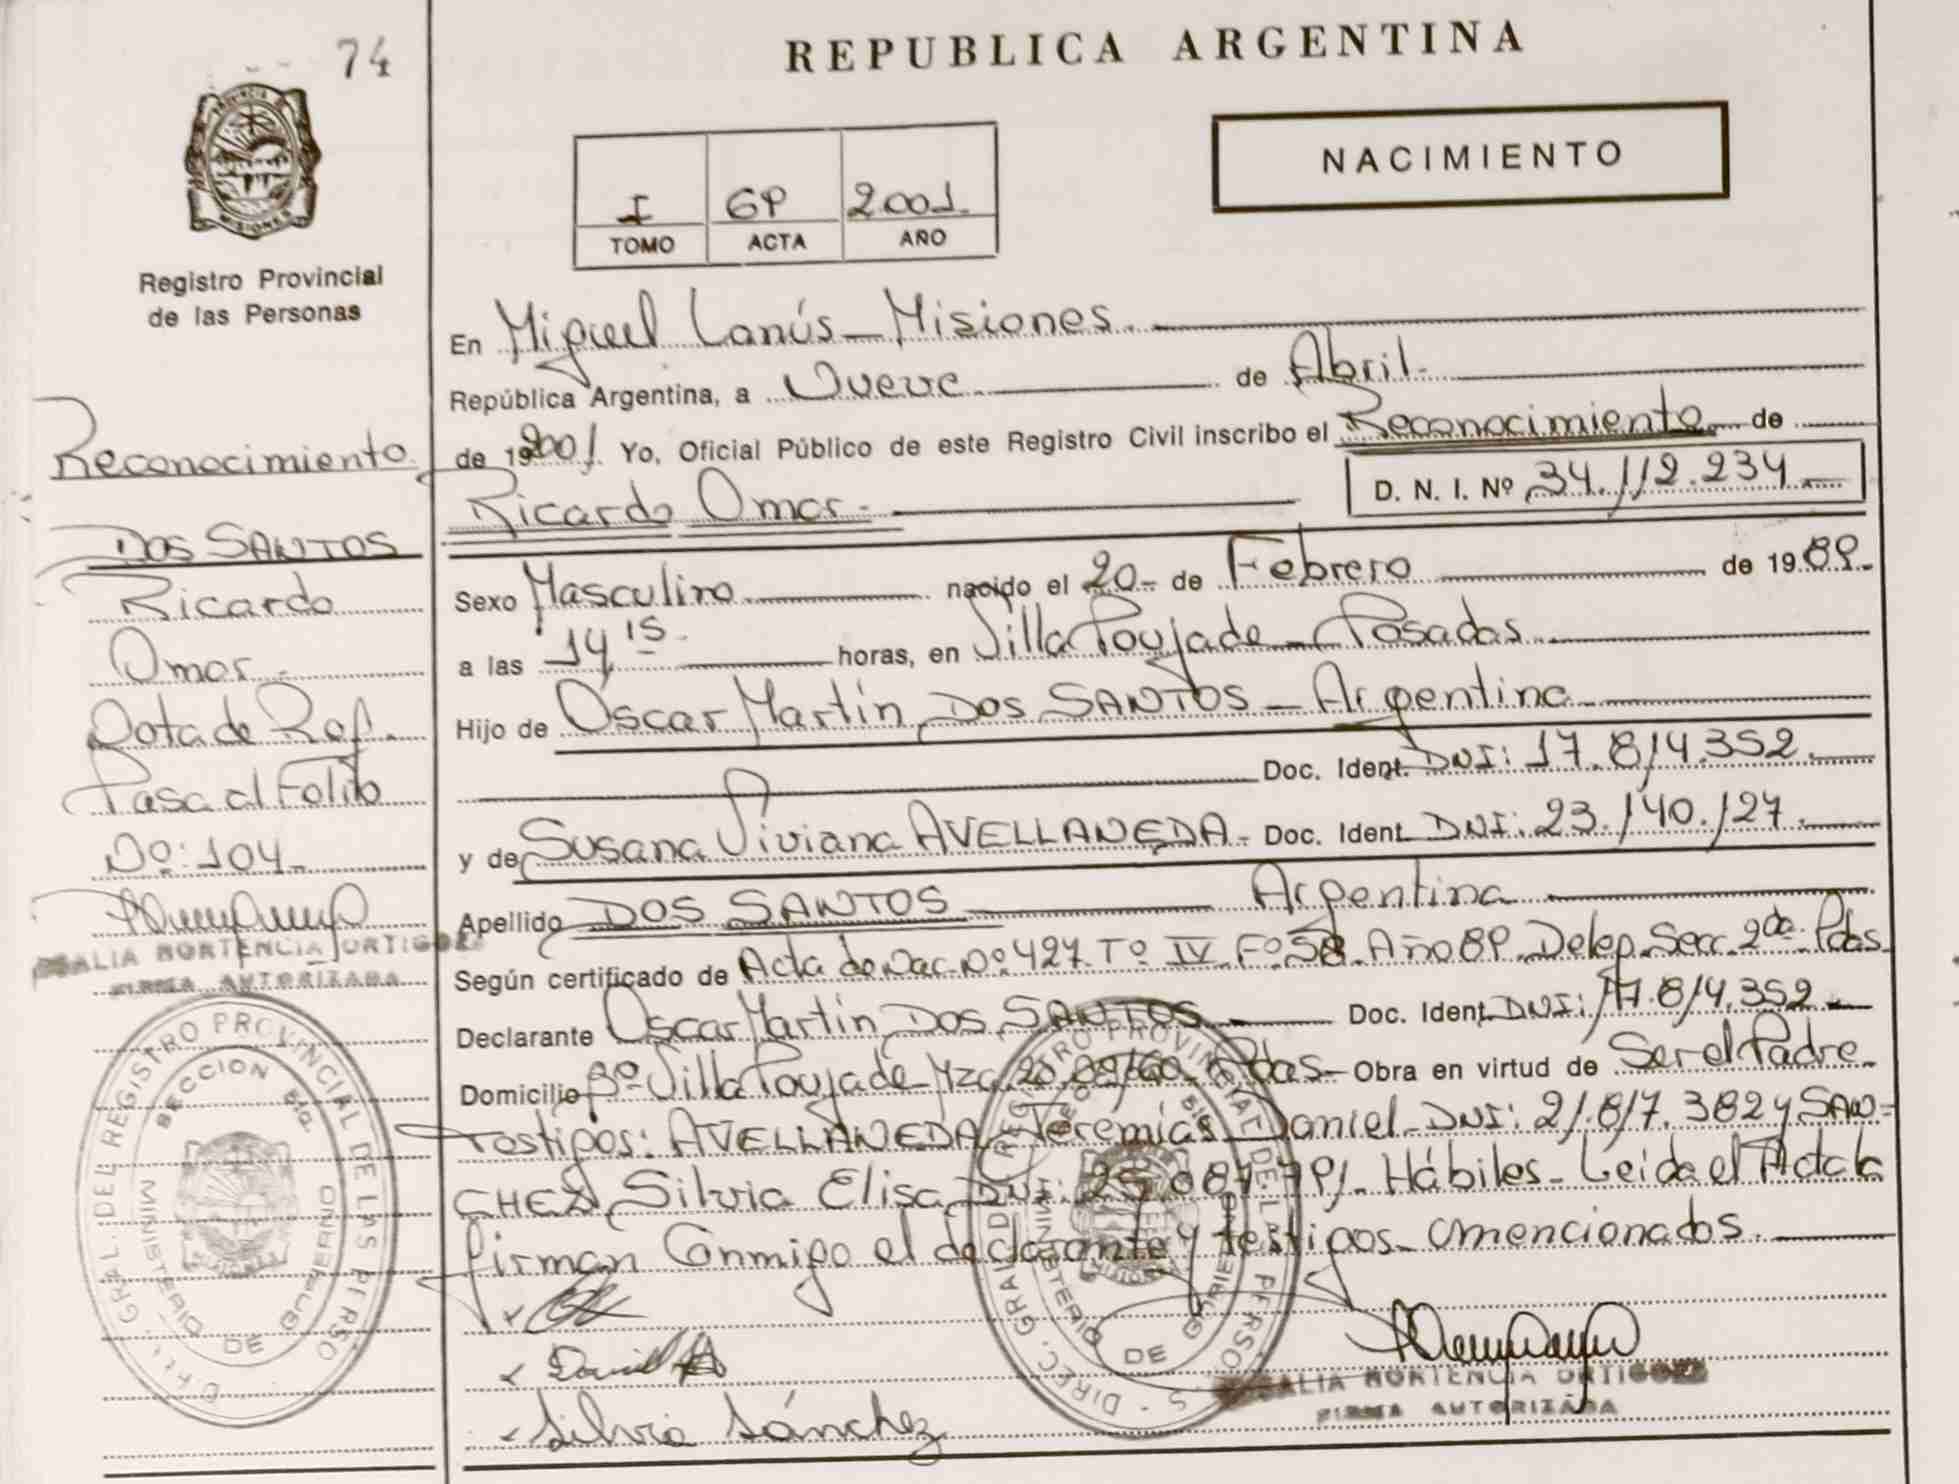 74
REPUBLICA ARGENTINA
NACIMIENTO
I 69 2001.
TOMO ACTA AÑO
PROVINCIA DE
MISIONES
Registro Provincial
de las Personas
Reconocimiento
DOS SANTOS
Ricardo
Omar.-
Nota de Ref.
Pasa al Folio
Nº: 104.-
ROSALIA HORTENCIA ORTIGOZA
FIRMA AUTORIZADA
DIREC. GRAL. DEL REGISTRO PROVINCIAL DE LAS PERSO
SECCION 5ta.
MINISTERIO DE GOBIERNO
En Miguel Lanús - Misiones.
República Argentina, a Nueve de Abril.
de 192001 Yo, Oficial Público de este Registro Civil inscribo el Reconocimiento de
Ricardo Omar.- D. N. I. Nº 34.112.234.-
Sexo Masculino nacido el 20.- de Febrero de 1989.
a las 14 15 horas, en Villa Poujade - Posadas.
Hijo de Oscar Martín DOS SANTOS - Argentina
Doc. Ident. DNI: 17.814.352.
y de Susana Viviana AVELLANEDA - Doc. Ident. DNI: 23.140.127.
Apellido DOS SANTOS Argentina
Según certificado de Acta de Nac. Nº 427. Tº IV. Fº 58. Año 89. Deleg. Secc. 2da. Pdas.
Declarante Oscar Martín DOS SANTOS Doc. Ident. DNI: 17.814.352
Domicilio Bº Villa Poujade Mza. 20. Pdas - Obra en virtud de Ser el Padre.
Testigos: AVELLANEDA Jeremías Daniel - DNI: 21.817.382 y SAN-
CHEZ, Silvia Elisa DNI: 25.087.791 - Hábiles - Leida el Acta la
firman Conmigo el declarante y testigos amencionados.
Silvia Sánchez
DIREC. GRAL. DEL REGISTRO PROVINCIAL DE LAS PERSO
MINISTERIO DE GOBIERNO
ROSALIA HORTENCIA ORTIGOZA
FIRMA AUTORIZADA